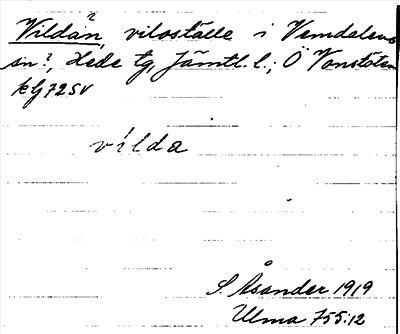 Vildan?, viloställe i Vemdalens
sn?, Hede tg, Jämtl. l.; Ö Vonstöten
kG72SV
vílda
S. Åsander 1919
Ulma 755:12